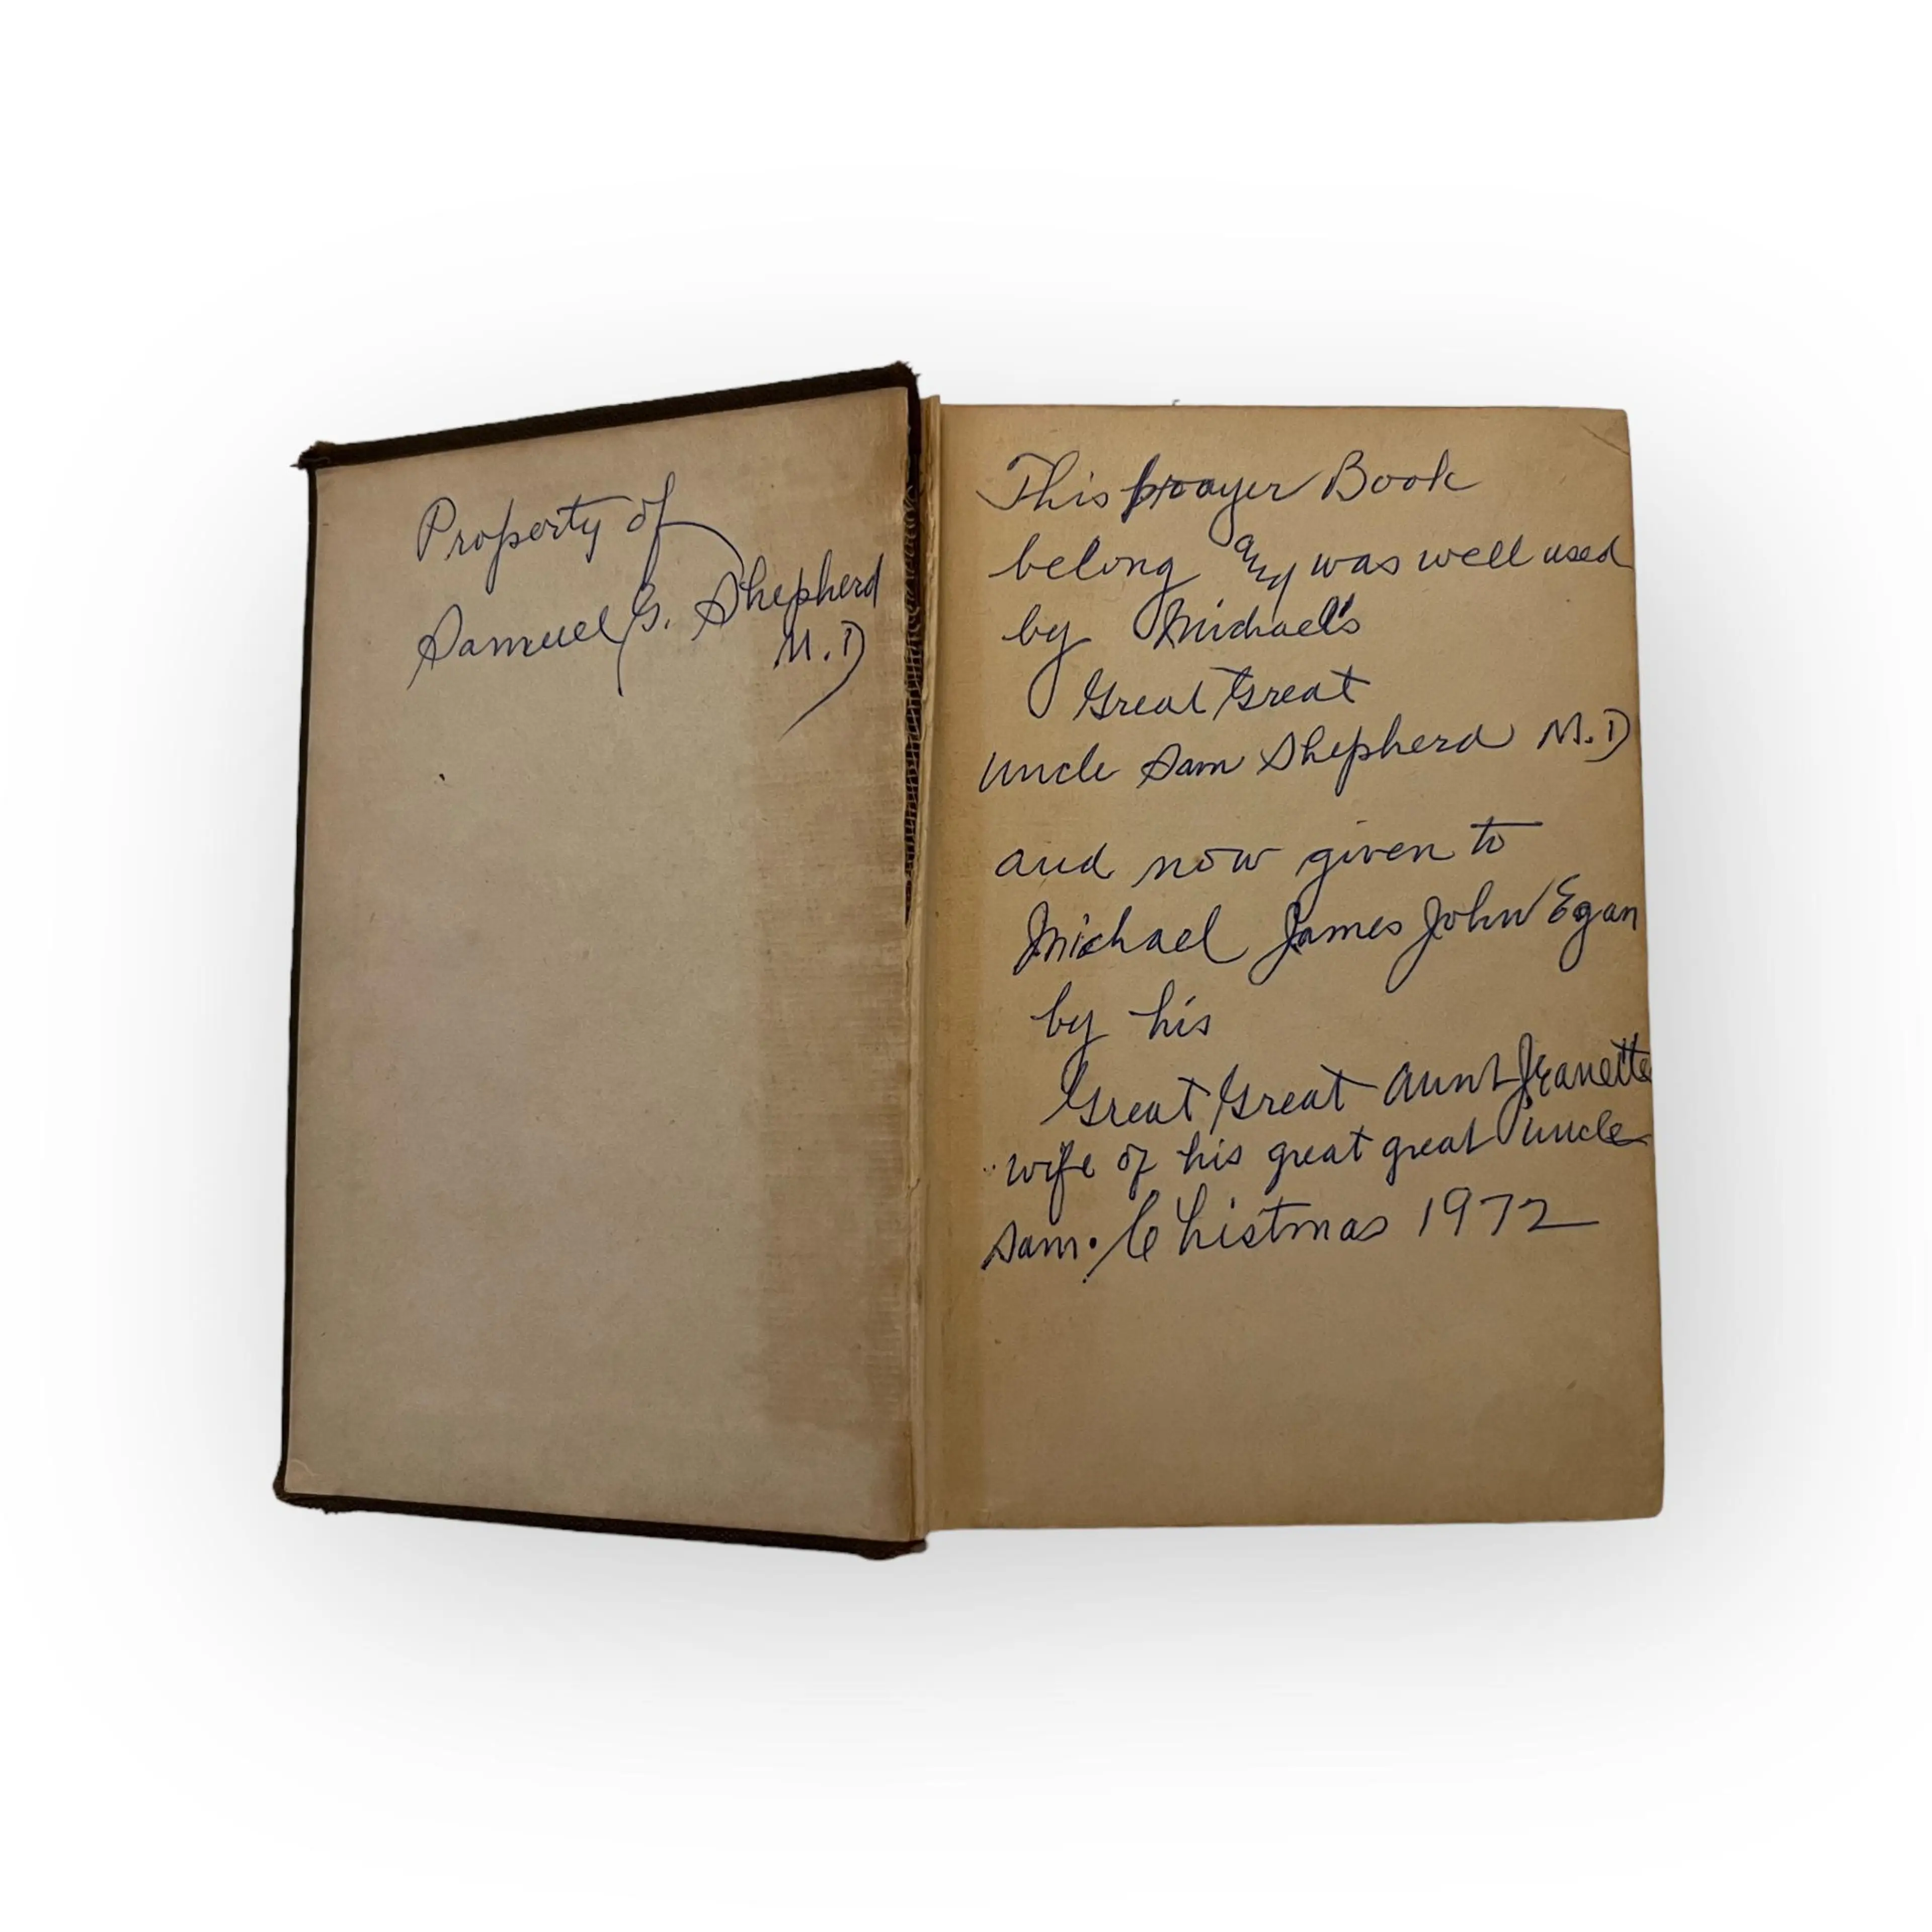 Property of
Samuel G. Shepherd
M.D
This prayer Book
belong and was well used
by Michael's
Great Great
Uncle Sam Shepherd M.D
and now given to
Michael James John Egan
by his
Great Great Aunt Jeanette
wife of his great great uncle
Sam. Christmas 1972